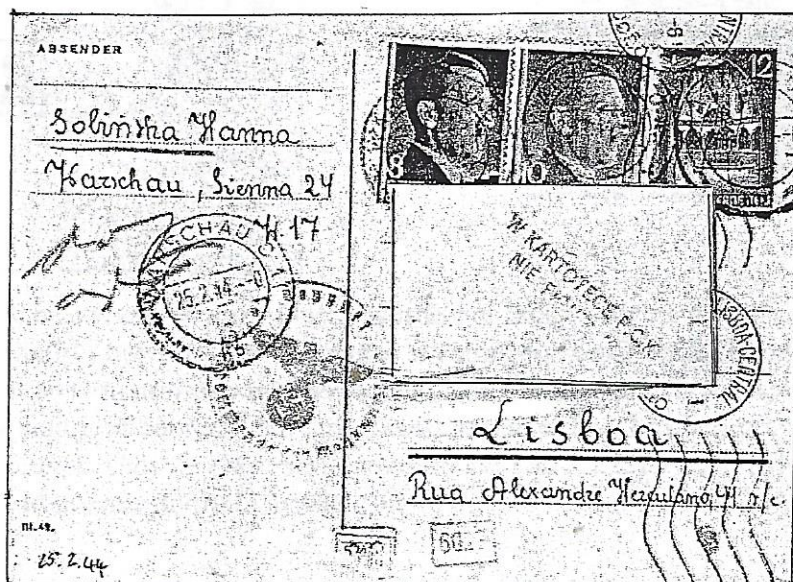 ABSENDER
Sobińska Hanna
Warschau, Sienna 24
W. 17
WARSCHAU C1
25.2.44
8
12
W KARTOTECE P.C.K.
NIE
LISBOA-CENTRAL
Lisboa
Rua Alexandre Herculano, 41 r/c.
III.43.
25.2.44